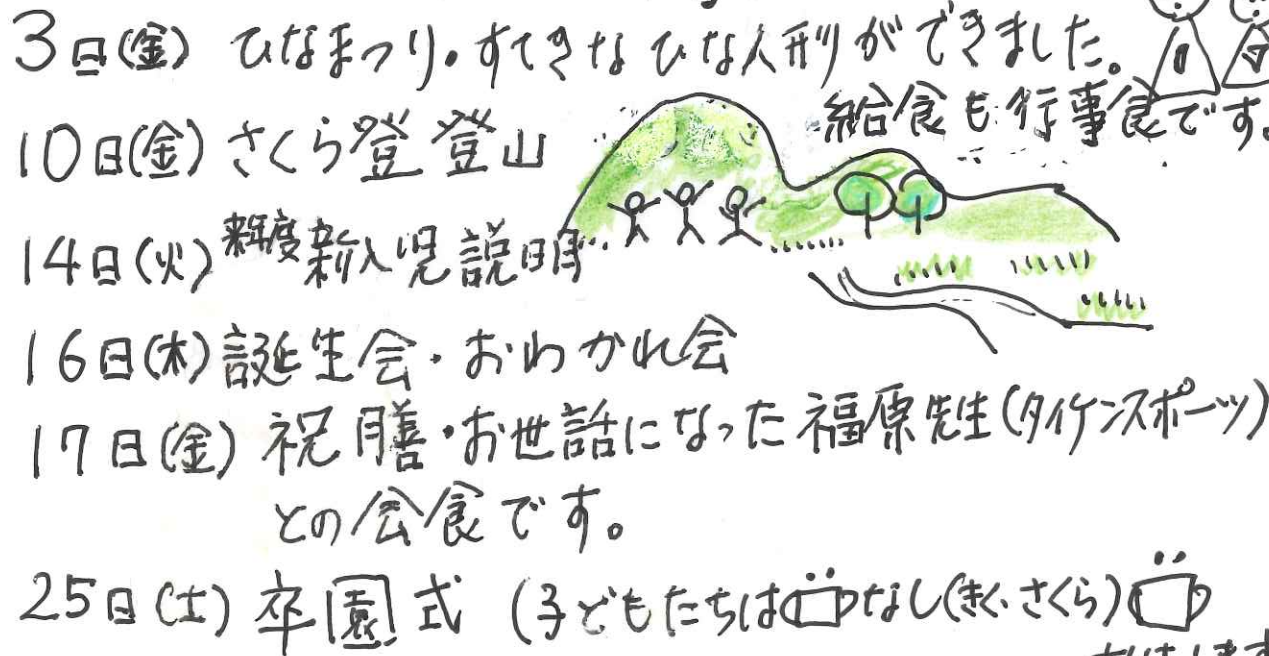 3日(金) ひなまつり。すてきなひな人形ができました。
給食も行事食です。
10日(金) さくら登 登山
14日(火) 来年度 新入児説明
16日(木) 誕生会・おわかれ会
17日(金) 祝膳・お世話になった福原先生(タイケンスポーツ)
との会食です。
25日(土) 卒園式 (子どもたちはなし(きく、さくら)